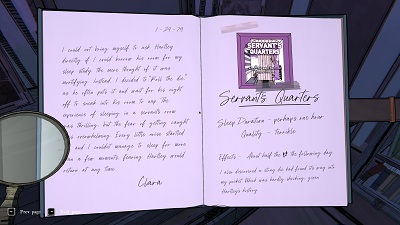 1-29-79
I could not bring myself to ask Hartley
directly if I could borrow his room for my
sleep study, the mere thought of it was
mortifying. Instead I decided to "Roll the die"
as he often puts it and wait for his night
off to sneak into his room to nap. The
experience of sleeping in a servant's room
was thrilling, but the fear of getting caught
was overwhelming. Every little noise startled
and I couldn't manage to sleep for more
than a few moments, fearing Hartley would
return at any time.
Clara
SERVANT'S
QUARTERS
Servant's Quarters
Sleep Duration - perhaps one hour
Quality - Terrible
Effects - About half the the following day
I also discovered a stray die had found its way into
my pocket. Which was hardly shocking, given
Hartley's history.
Prev page